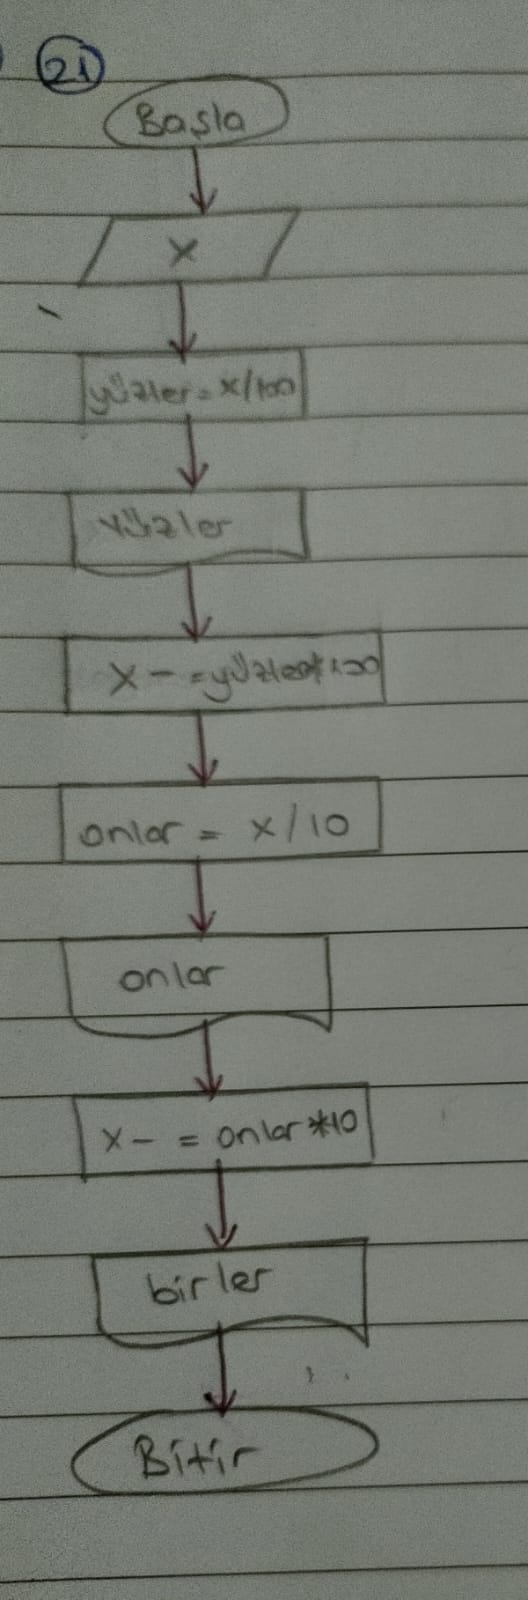 21
Başla
X
yüzler = x/100
yüzler
X - = yüzler*100
onlar = x/10
onlar
X - = onlar *10
birler
Bitir